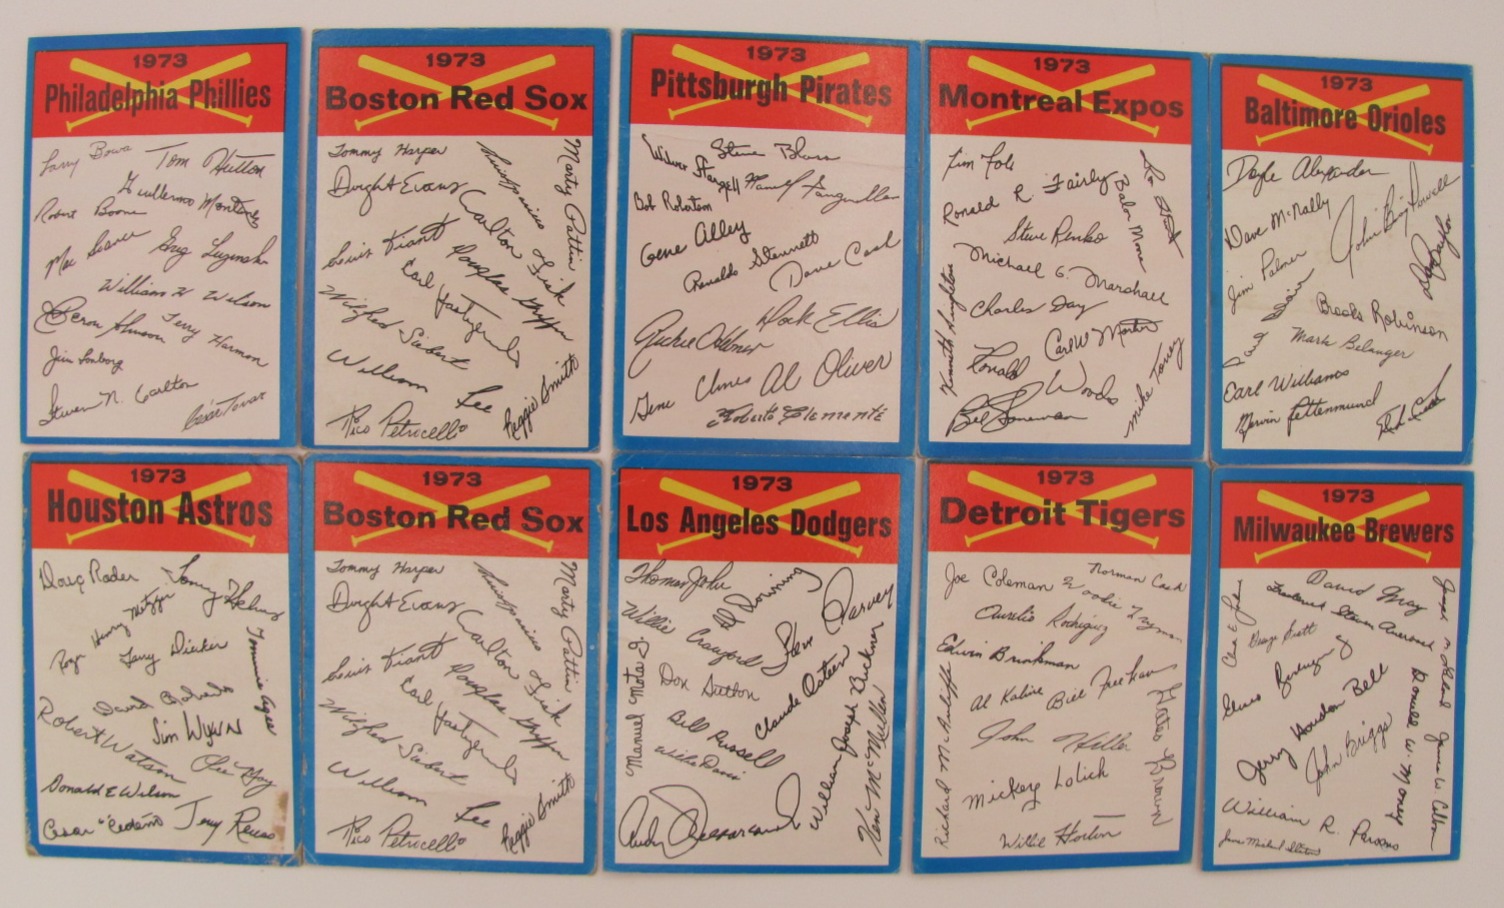 1973
Philadelphia Phillies
Larry Bowa
Tom Hutton
Guillermo Montanez
Robert Boone
Mac Scarce
Greg Luzinski
William H Wilson
Terry Harmon
Jim Lonborg
Steven N. Carlton
Cesar Tovar
1973
Boston Red Sox
Tommy Harper
Marty Pattin
Dwight Evans
Carlton Fisk
Luis Tiant
Douglas Griffin
Carl Yastrzemski
Wilfred Siebert
William Lee
Reggie Smith
Rico Petrocelli
1973
Pittsburgh Pirates
Steve Blass
Wilver Stargell
Manny Sanguillen
Bob Robertson
Gene Alley
Renaldo Stennett
Dave Cash
Dock Ellis
Richie Hebner
Gene Clines
Al Oliver
Roberto Clemente
1973
Montreal Expos
Tim Foli
Ronald R. Fairly
Balor Moore
Steve Renko
Michael G. Marshall
Kenneth Singleton
Charles Day
Carl W Morton
Ronald Woods
Mike Torrez
Bill Stoneman
1973
Baltimore Orioles
Doyle Alexander
Dave McNally
John "Boog" Powell
Jim Palmer
Brooks Robinson
Mark Belanger
Earl Williams
Mervin Rettenmund
1973
Houston Astros
Doug Rader
Tommy Helms
Roger Henry Metzger
Larry Dierker
Tommie Agee
David Roberts
Jim Wynn
Robert Watson
Lee May
Donald E Wilson
Cesar "Cedeño"
Jerry Reuss
1973
Boston Red Sox
Tommy Harper
Marty Pattin
Dwight Evans
Carlton Fisk
Luis Tiant
Douglas Griffin
Carl Yastrzemski
Wilfred Siebert
William Lee
Reggie Smith
Rico Petrocelli
1973
Los Angeles Dodgers
Thomas John
Al Downing
Willie Crawford
Steve Garvey
Manuel Mota
Don Sutton
Claude Osteen
Bill Russell
Willie Davis
William Joseph Buckner
Ken McMullen
Andy Messersmith
1973
Detroit Tigers
Joe Coleman
Norman Cash
Woodie Fryman
Aurelio Rodriguez
Edwin Brinkman
Al Kaline
Bill Freehan
John Hiller
Gates Brown
Richard McAuliffe
Mickey Lolich
Willie Horton
1973
Milwaukee Brewers
David May
George Scott
Jerry Houston Bell
John Briggs
Donald W. Money
James W. Colborn
William R. Parsons